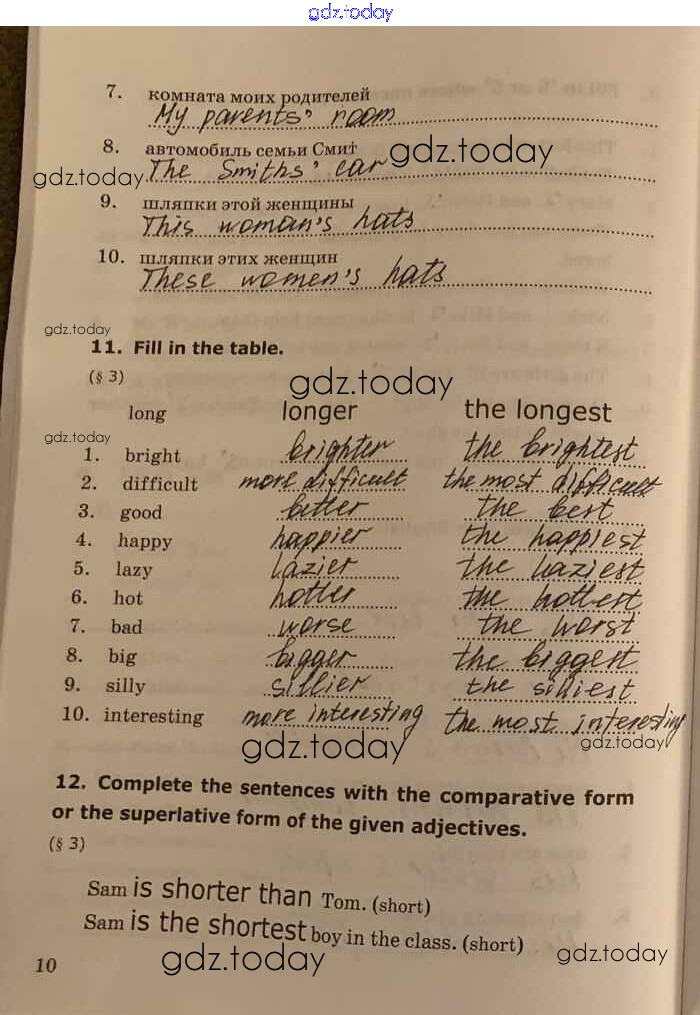 gdz.today
7. комната моих родителей
My parents' room
8. автомобиль семьи Смит
gdz.today
The Smiths' car
gdz.today
9. шляпки этой женщины
This woman's hats
10. шляпки этих женщин
These women's hats
gdz.today
11. Fill in the table.
(§ 3)
gdz.today
long longer the longest
gdz.today
1. bright brighter the brightest
2. difficult more difficult the most difficult
3. good better the best
4. happy happier the happiest
5. lazy lazier the laziest
6. hot hotter the hottest
7. bad worse the worst
8. big bigger the biggest
9. silly sillier the silliest
10. interesting more interesting the most interesting
gdz.today
gdz.today
12. Complete the sentences with the comparative form
or the superlative form of the given adjectives.
(§ 3)
Sam is shorter than Tom. (short)
Sam is the shortest boy in the class. (short)
10
gdz.today
gdz.today